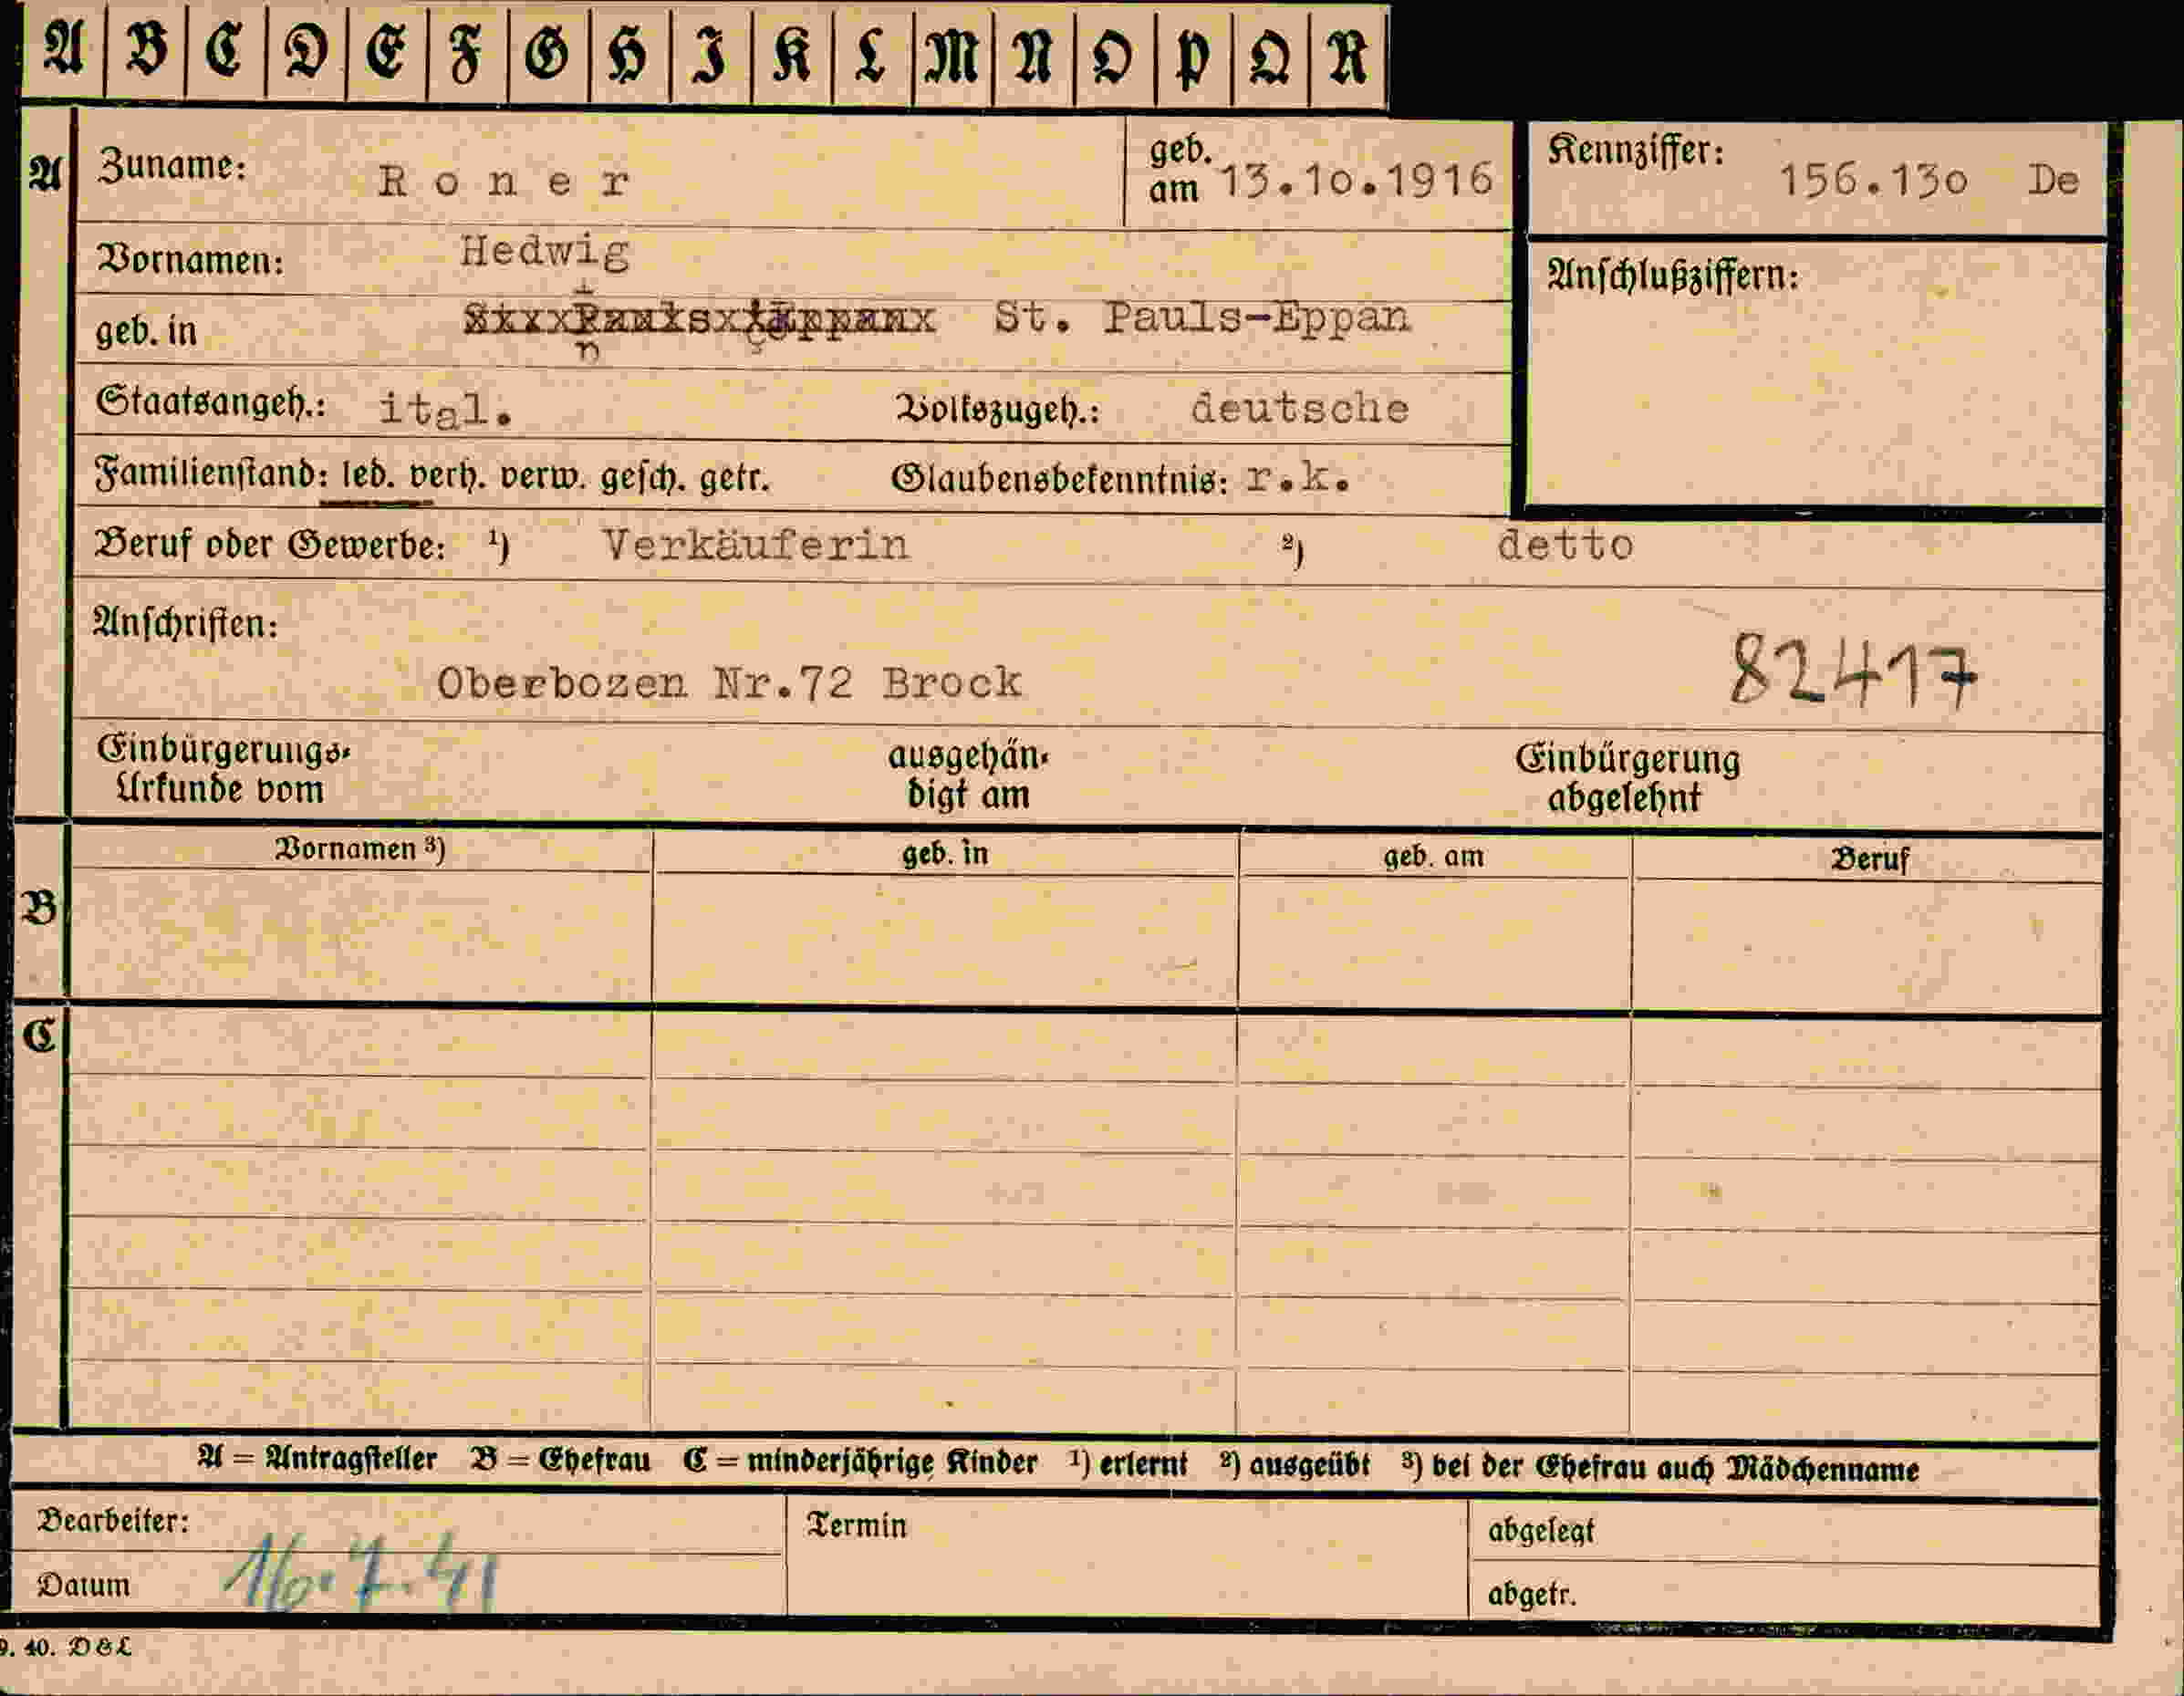 A B C D E F G H I K L M N O P Q R
A Zuname: Roner geb. am 13.10.1916 Kennziffer: 156.130 De
Vornamen: Hedwig Anschlußziffern:
geb. in St. Pauls-Eppan
Staatsangeh.: ital. Volkszugeh.: deutsche
Familienstand: led. verh. verw. gesch. getr. Glaubensbekenntnis: r.k.
Beruf oder Gewerbe: ¹) Verkäuferin ²) detto
Anschriften:
82417
Oberbozen Nr.72 Brock
Einbürgerungs- ausgehän- Einbürgerung
Urkunde vom digt am abgelehnt
Vornamen ³) geb. in geb. am Beruf
B
C
A = Antragsteller B = Ehefrau C = minderjährige Kinder ¹) erlernt ²) ausgeübt ³) bei der Ehefrau auch Mädchenname
Bearbeiter: Termin abgelegt
Datum 16.7.41 abgetr.
9. 40. D&L